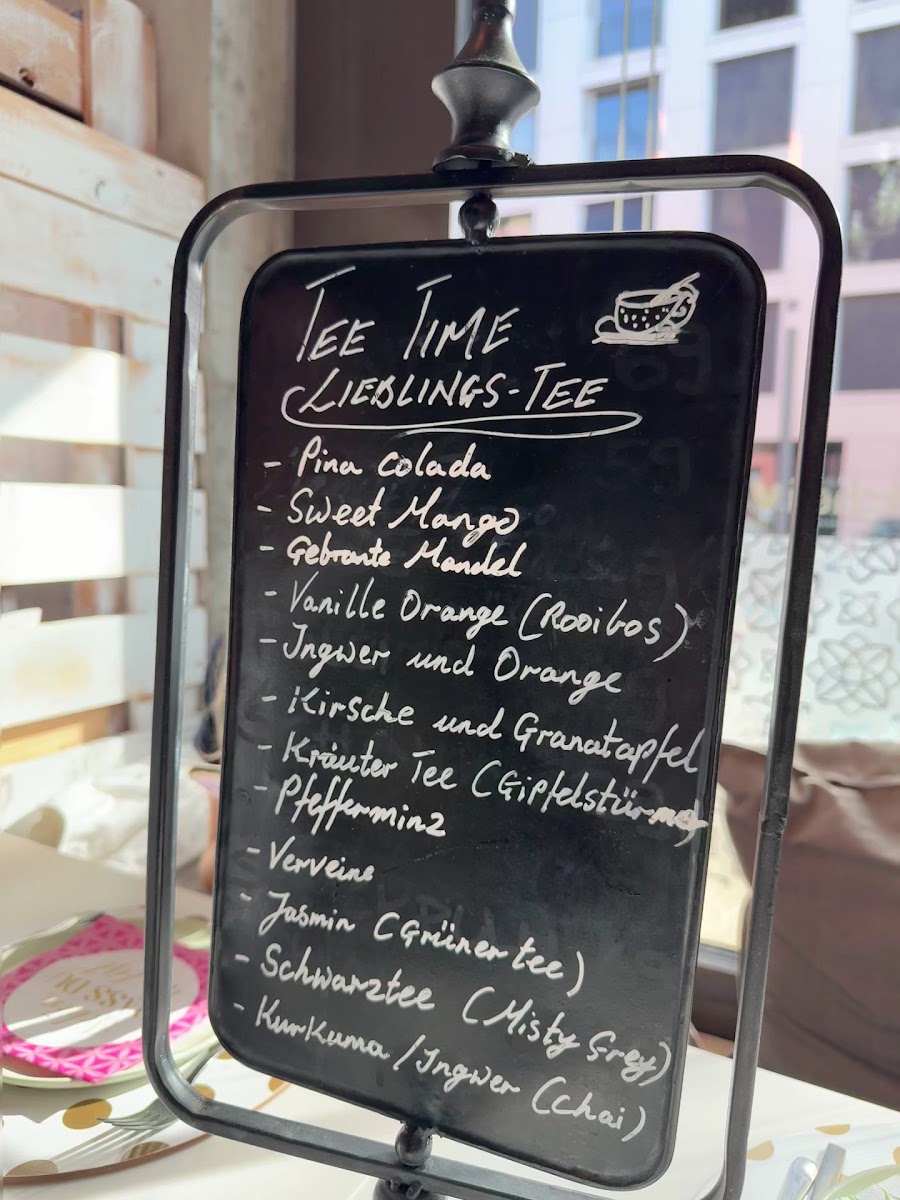 TEE TIME
LIEBLINGS-TEE
- Pina colada
- Sweet Mango
- Gebrante Mandel
- Vanille Orange (Rooibos)
- Ingwer und Orange
- Kirsche und Granatapfel
- Kräuter Tee (Gipfelstürmer
- Pfefferminz
- Verveine
- Jasmin (Grüner tee)
- Schwarztee (Misty Grey)
- Kurkuma / Ingwer (Chai)